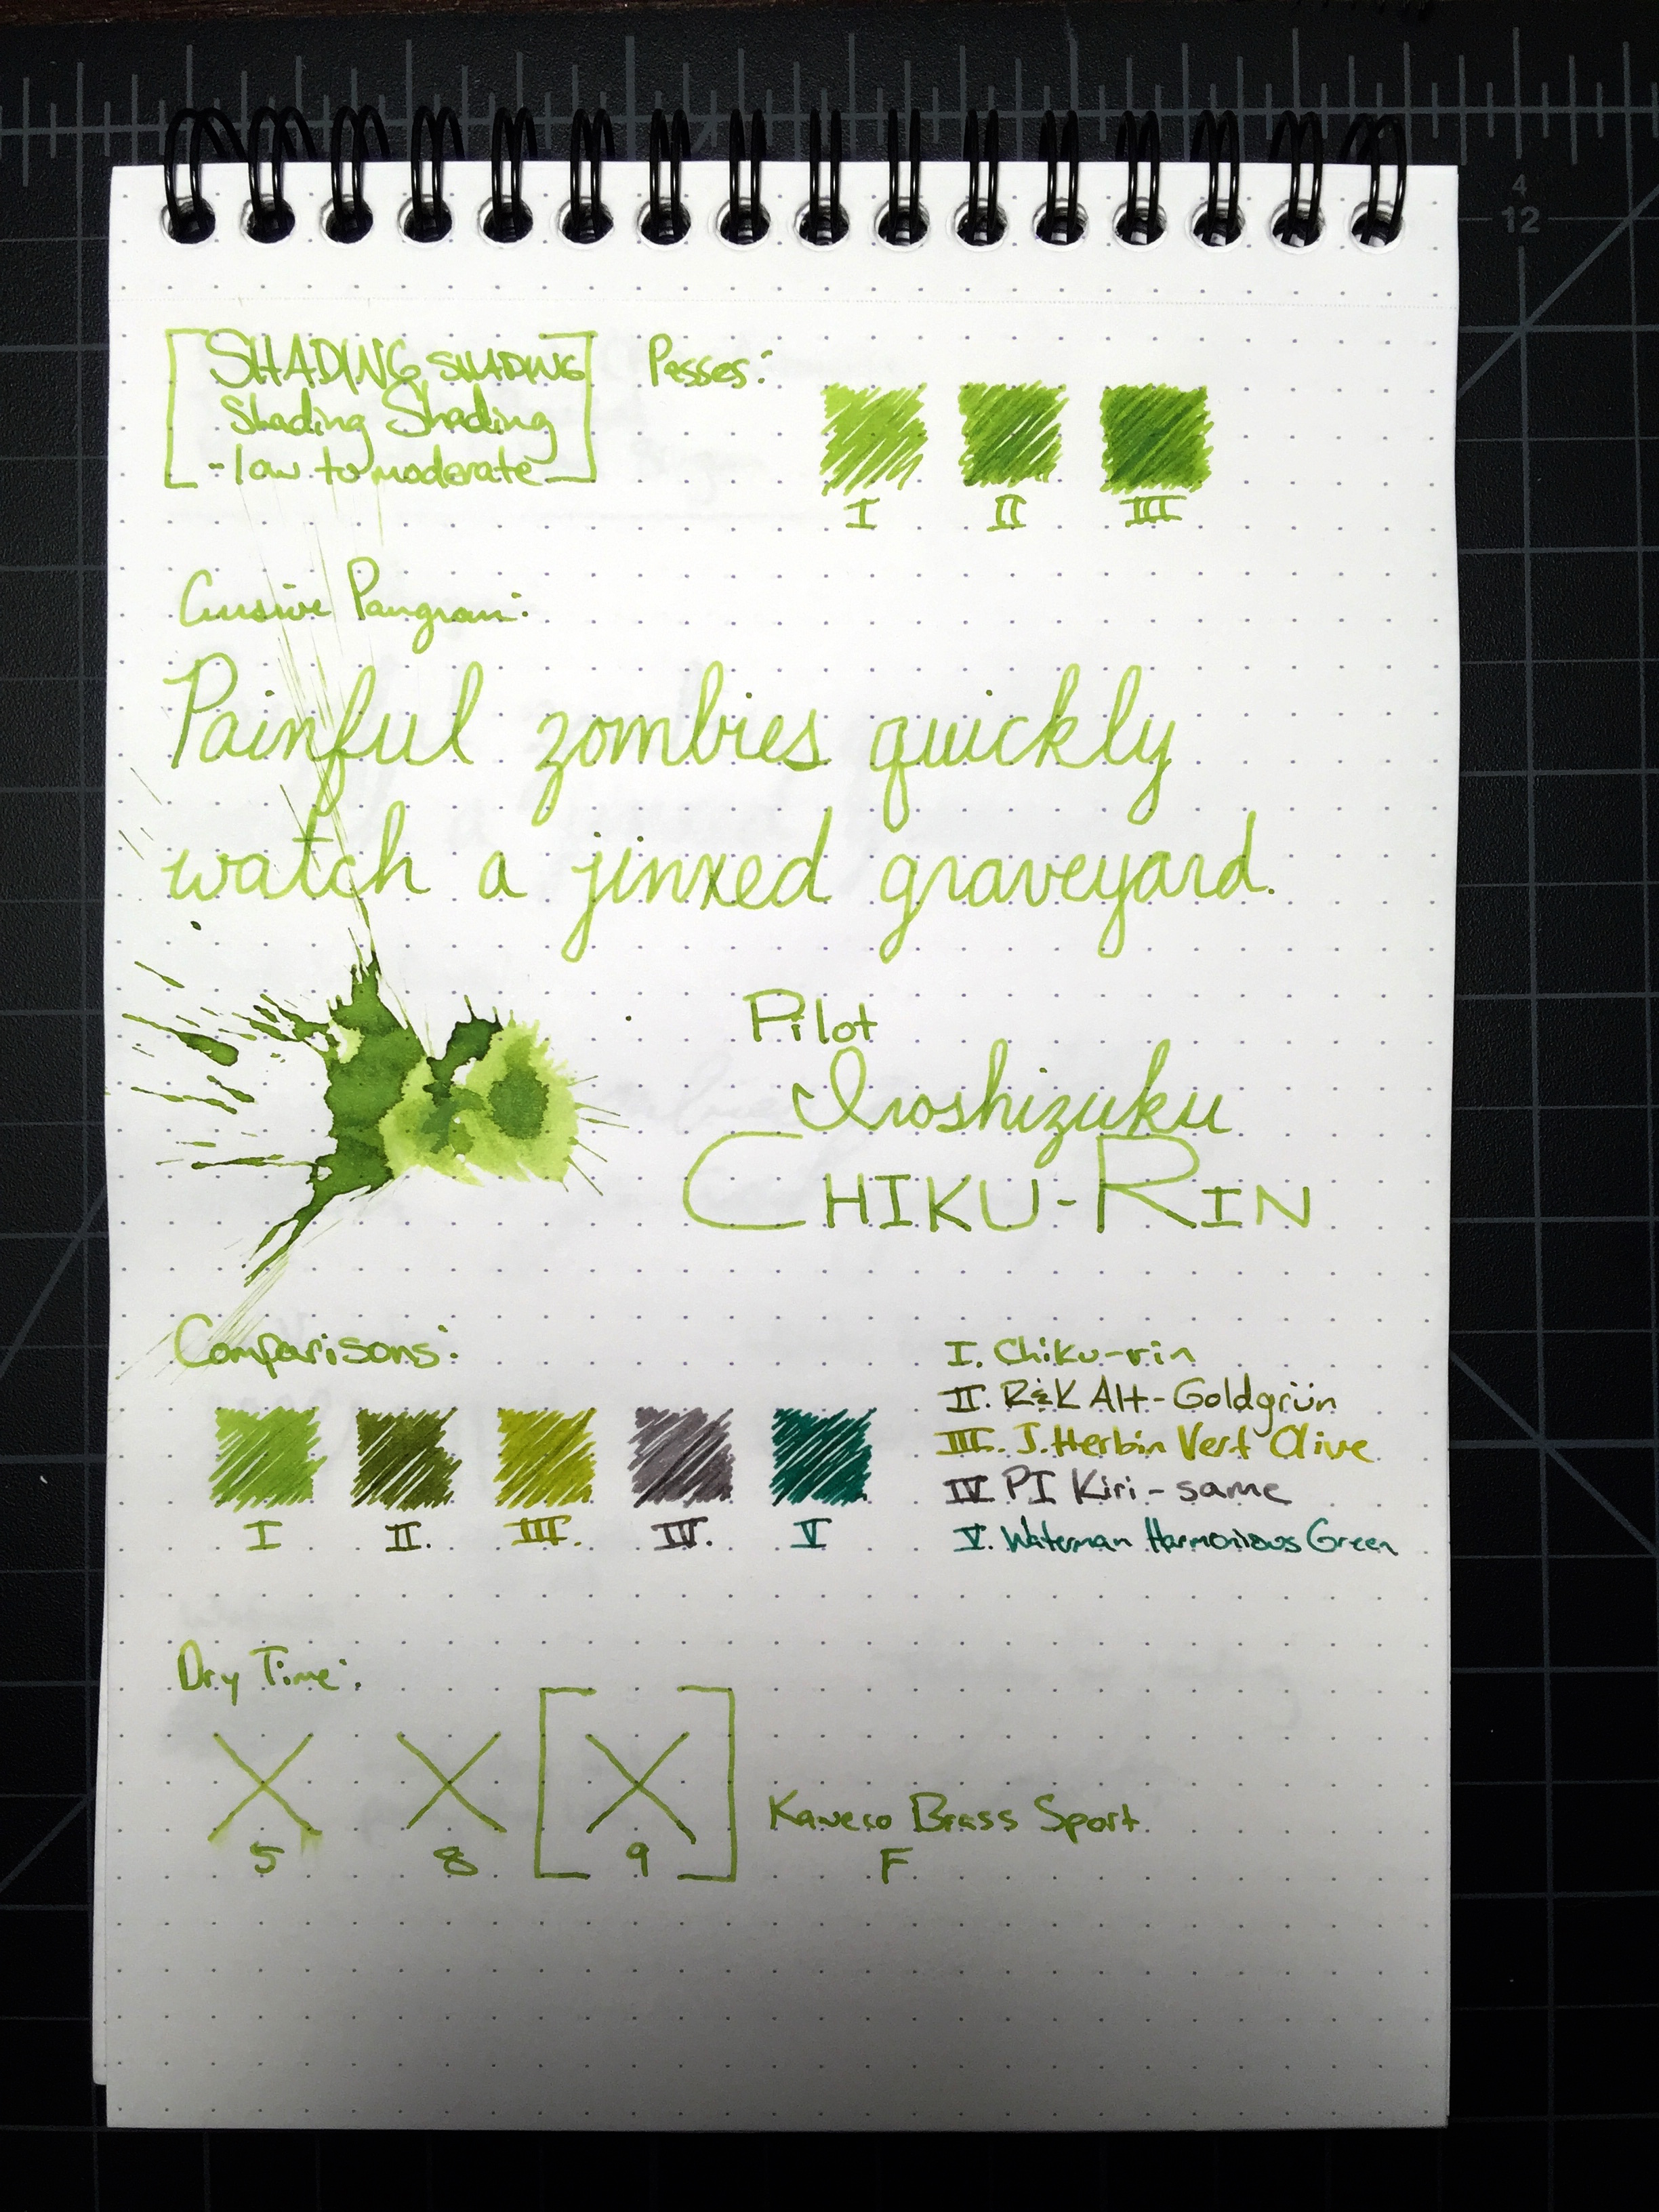 SHADING SHADING
Shading Shading
- low to moderate
Passes:
I II III
Cursive Pangram:
Painful zombies quickly
watch a jinxed graveyard.
Pilot
Iroshizuku
CHIKU-RIN
Comparisons:
I II. III. IV. V
I. Chiku-rin
II. R&K Alt-Goldgrün
III. J. Herbin Vert Olive
IV. PI Kiri-same
V. Waterman Harmonious Green
Dry Time:
5 8 9
Kaweco Brass Sport
F
4
12